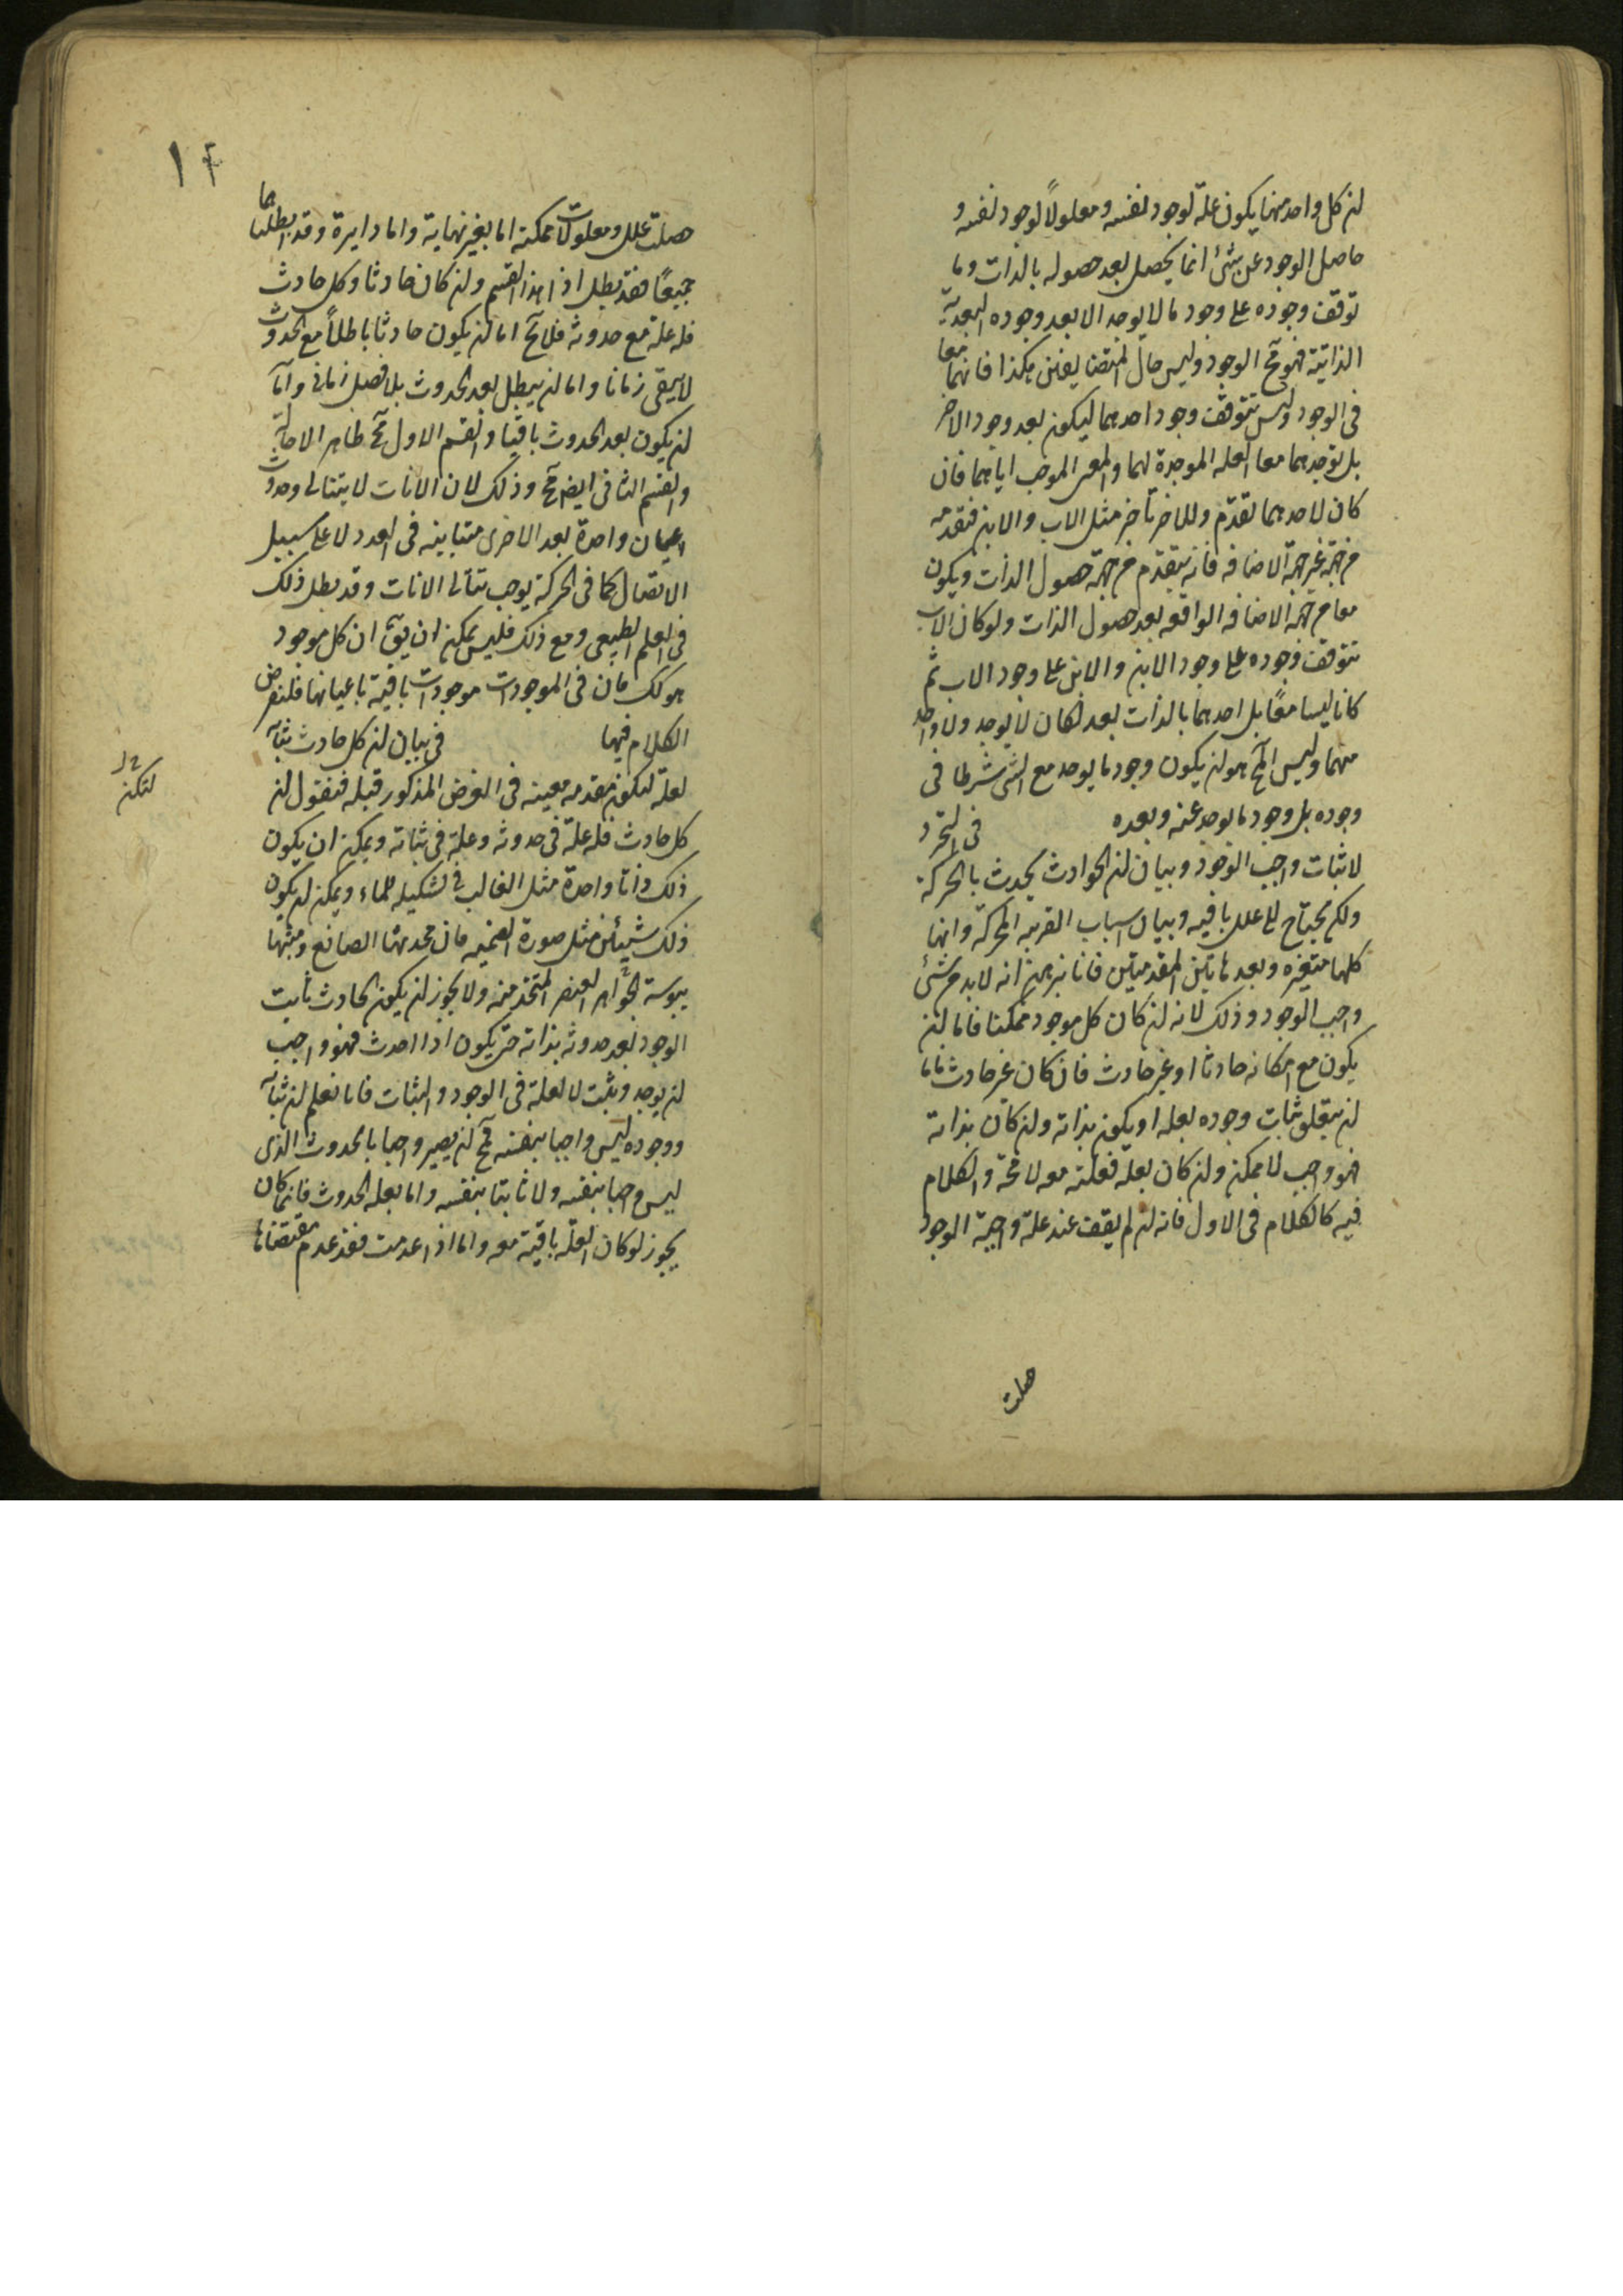 ان كل واحد منهما يكون علة لوجود نفسه ومعلولاً لوجود نفسه و
حاصل الوجود عن شئ انما يحصل بعد حصوله بالذات وما
توقف وجوده على وجود ما لا يوجد الا بعد وجوده البعدية
الذاتية فهو مح الوجود وليس حال المتضايفين هكذا فانهما معا
فى الوجود وليس تتوقف وجود احدهما ليكون بعد وجود الاخر
بل توجدهما معا العله الموجدة لهما والمعنى الموجب اياهما فان
كان لاحدهما تقدم وللاخر تأخر مثل الاب والابن فتقدمه
من جهة غير جهة الاضافه فانه يتقدم من جهة حصول الذات ويكون
معا من جهة الاضافه الواقعه بعد حصول الذات ولو كان الاب
تتوقف وجوده على وجود الابن والابن على وجود الاب ثم
كانا ليسا معًا بل احدهما بالذات بعد لكان لا يوجد ولا واحد
منهما وليس المح هو ان يكون وجود ما يوجد مع الشئ شرطا فى
وجوده بل وجود ما يوجد عنه وبعده فى التجرد
لاثبات واجب الوجود وبيان ان الحوادث يحدث بالحركة
ولكن يحتاج الى علل باقيه وبيان اسباب القريبه المحركة وانها
كلها متغيره وبعد هاتين المقدمتين فانا نبرهن انه لابد من شئ
واجب الوجود وذلك لانه ان كان كل موجود ممكنا فاما ان
يكون مع امكانه حادثا او غير حادث فان كان غير حادث فاما
ان يتعلق ثبات وجوده بعله او يكون بذاته وان كان بذاته
فهو واجب لا ممكن وان كان بعلة فعلته معه لا محة والكلام
فيه كالكلام فى الاول فانه ان لم يقف عند علة واجبة الوجود
حصلت
١٤
حصلت علل ومعلولات ممكنة اما بغير نهاية واما دايرة وقد ابطلناهما
جميعًا فقد بطل اذا هذا القسم وان كان حادثا وكل حادث
فله علة مع حدوثه فلا يخ اما ان يكون حادثا باطلاً مع الحدوث
لا يبقى زمانا واما ان يبطل بعد الحدوث بلا فصل زمانى واما
ان يكون بعد الحدوث باقيا والقسم الاول مح ظاهر الاحالة
والقسم الثانى ايضا مح وذلك لان الانات لا يتتالى وحدوث
اعيان واحدة بعد الاخرى متباينه فى العدد لا على سبيل
الاتصال كما فى الحركة يوجب تتالى الانات وقد بطل ذلك
فى العلم الطبيعى ومع ذلك فليس يمكن ان يق ان كل موجود
هو كك فان فى الموجودات موجودات باقية باعيانها فلنفرض
الكلام فيها فى بيان ان كل حادث ثباته
لعلة لتكون مقدمه معينه فى الغرض المذكور قبله فنقول ان
كل حادث فله علة فى حدوثه وعلة فى ثباته ويمكن ان يكون
ذلك ذاتا واحدة مثل القالب فى تشكيله للماء ويمكن ان يكون
ذلك شيئين مثل صورة الصنميه فان محدثها الصانع ومثبتها
يبوسة الجواهر العنصر المتخذ منه ولا يجوز ان يكون الحادث ثابت
الوجود بعد حدوثه بذاته حتى يكون اذا احدث فهو واجب
ان يوجد ويثبت لا لعلة فى الوجود والثبات فانا نعلم ان ثباته
ووجوده ليس واجبا بنفسه فمح ان يصير واجبا بالحدوث الذى
ليس واجبا بنفسه ولا ثابتا بنفسه واما بعله الحدوث فانما كان
يجوز لو كان العلة باقية معه واما اذا عدمت فقد عدم مقتضاها
لتكن